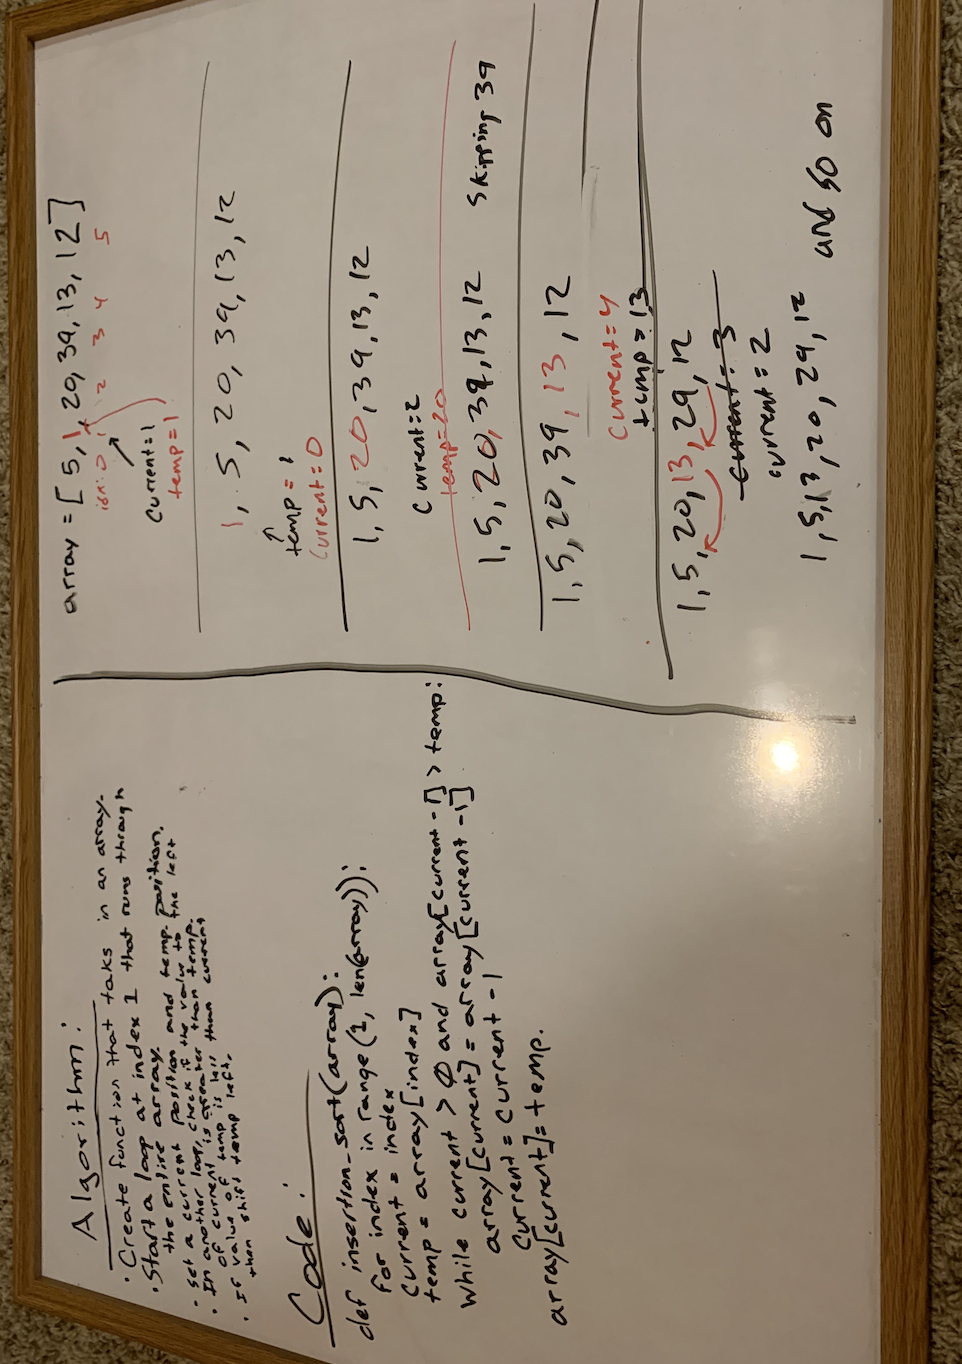 Algorithm:
• Create function that taks in an array.
• Start a loop at index 1 that runs through
the entire array.
• Set a current position and temp. position.
• In another loop, check if the value to the left
of current is greater than temp.
• If value of temp is less than current
then shift temp left.
Code:
def insertion_sort(array):
for index in range(1, len(array)):
current = index
temp = array[index]
while current > 0 and array[current - 1] > temp:
array[current] = array[current -1]
current = current -1
array[current] = temp.
array = [5, 1, 20, 39, 13, 12]
0 1 2 3 4 5
current=1
temp=1
1, 5, 20, 39, 13, 12
temp = 1
current=0
1, 5, 20, 39, 13, 12
current=2
temp=20
1, 5, 20, 39, 13, 12 skipping 39
1, 5, 20, 39, 13, 12
current=4
temp=13
1, 5, 20, 13, 29, 12
current=3
current=2
1, 5, 13, 20, 29, 12 and so on